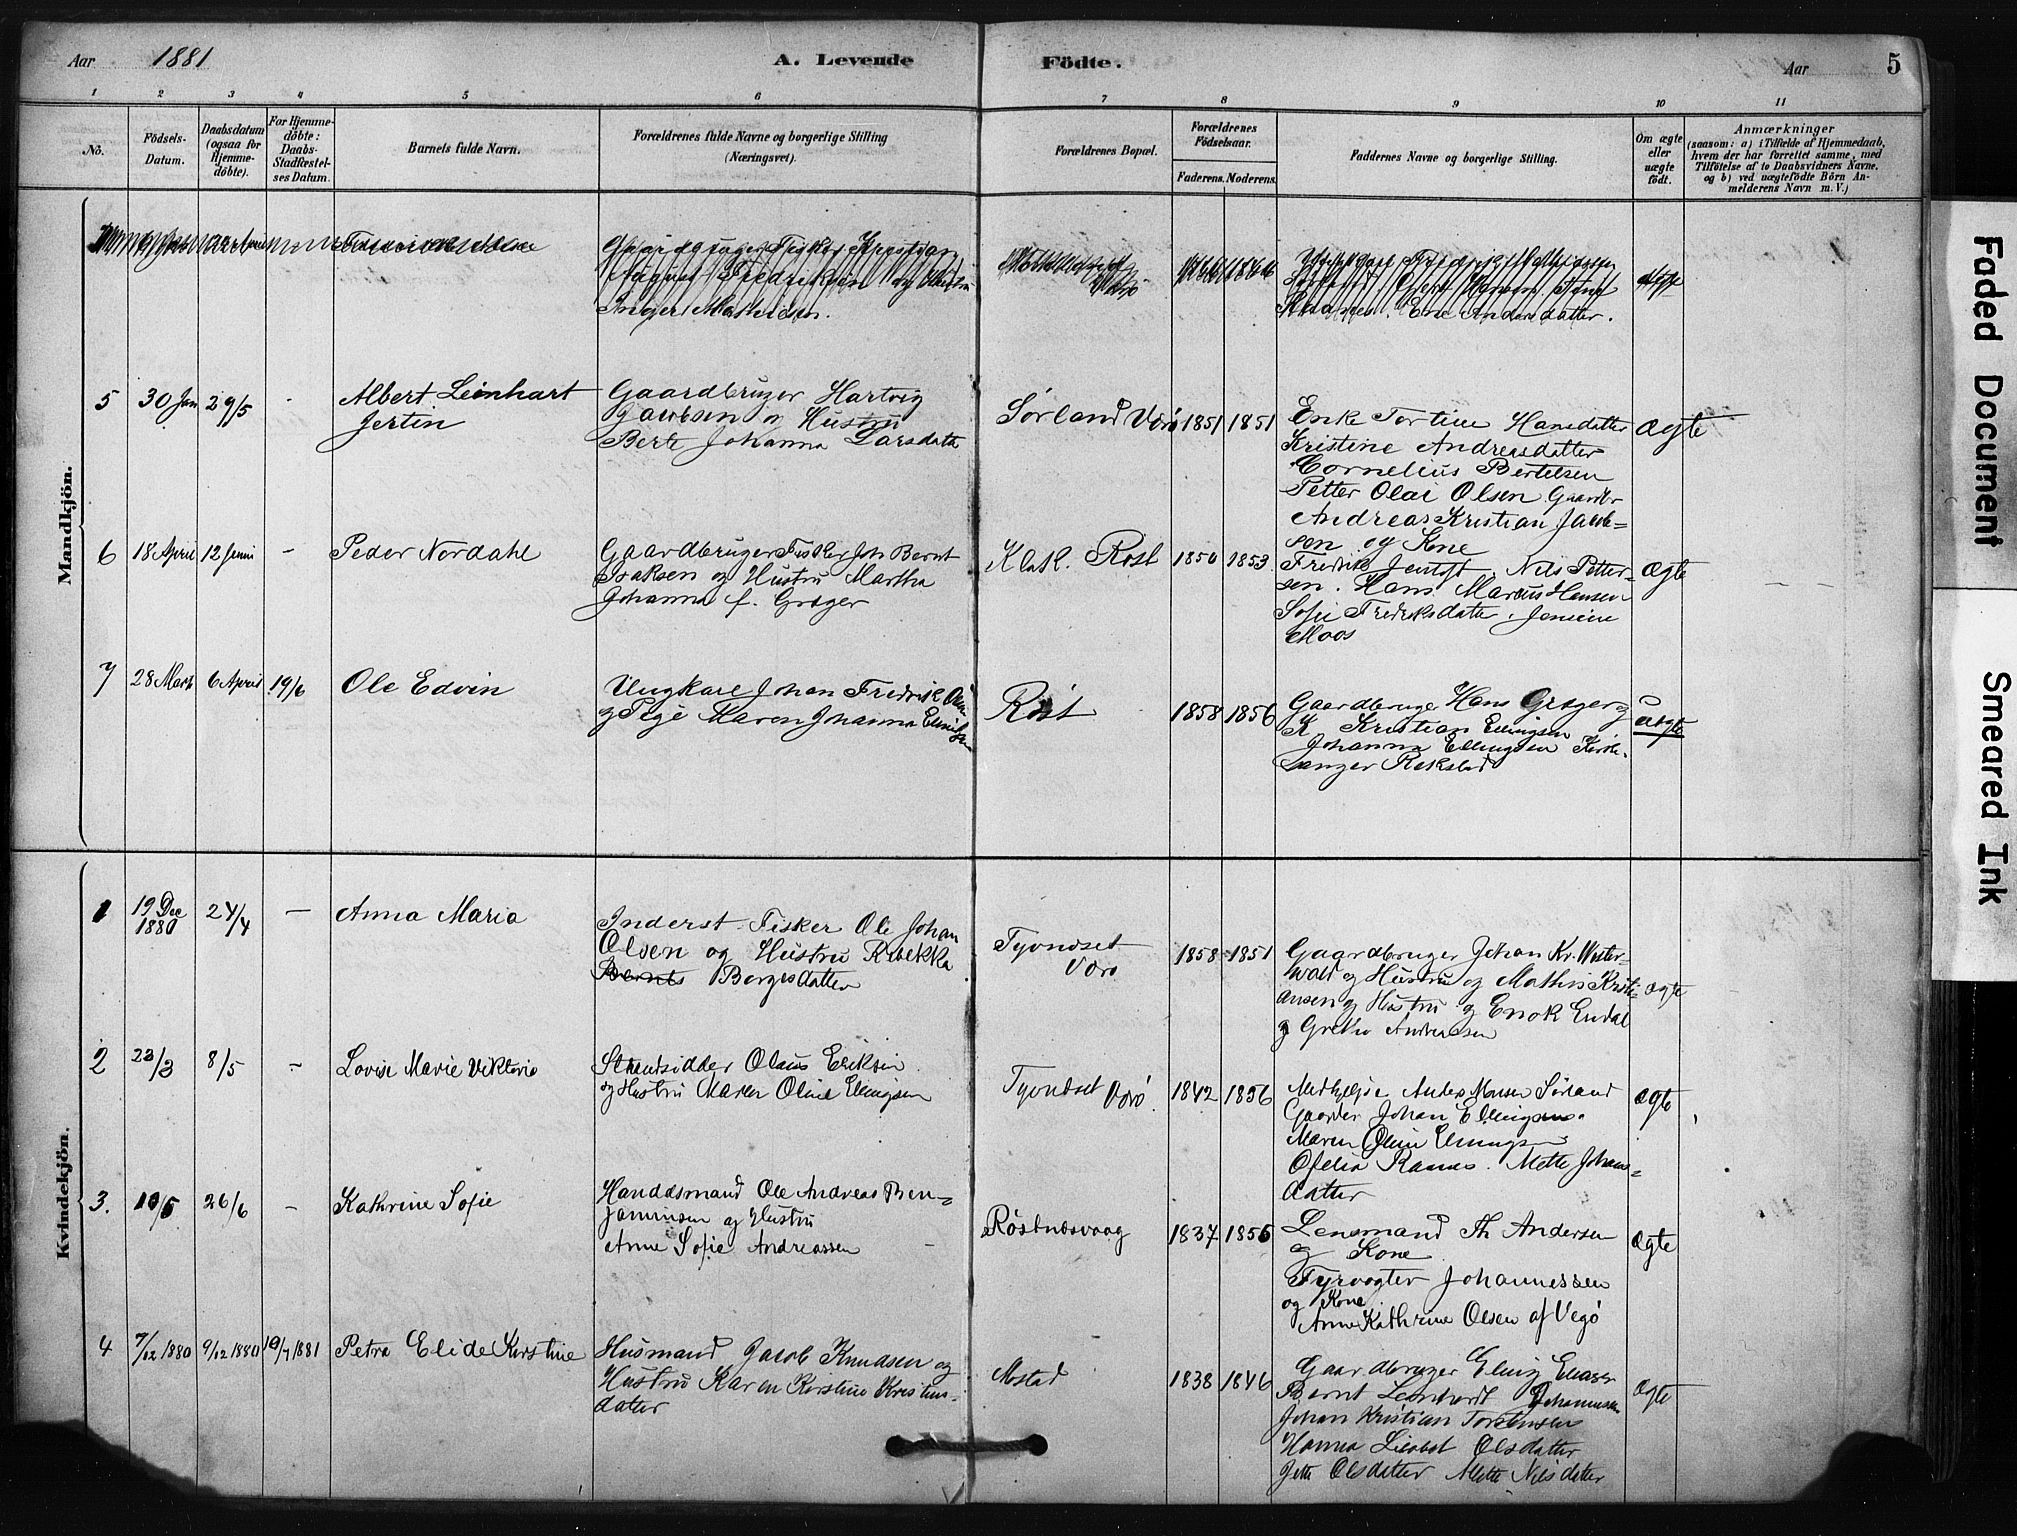 Aar 1881
A. Levende Födte.
Aar
5
1 2 3 4 5 6 7 8 9 10 11
No.
Födsels-
Datum.
Daabsdatum
(ogsaa for
Hjemme-
döbte).
For Hjemme-
döbte:
Daabs-
Stadfæstel-
ses Datum.
Barnets fulde Navn.
Forældrenes fulde Navne og borgerlige Stilling
(Næringsvei).
Forældrenes Bopæl.
Forældrenes
Födselsaar.
Faderens. Moderens.
Faddernes Navne og borgerlige Stilling.
Om ægte
eller
uægte
födt.
Anmærkninger
(saasom: a) i Tilfælde af Hjemmedaab,
hvem der har forrettet samme, med
Tilföielse af to Daabsvidners Navne.
og b) ved uægtefödte Börn An-
melderens Navn m. V.)
Mandkjön.
Inger Mathisen.
5 30 Jan 29/5 - Albert Leonhart
Jertin
Gaardbruger Hartvig
Jacobsen og Hustru
Berte Johanna Larsdatte
Sørland Værø 1851 1851
Enke Tortine Hansdatter
Kristine Andreasdatter
Cornelius Bertelsen
Petter Olai Olsen Gaardbr
Andreas Kristian Jacob=
sen og Kone
Ægte
6 18 April 12 Juni - Peder Nordahl
Gaardbruger Fisker Joh Bernt
Isaksen og Hustru Martha
Johanna f. Grøger
Klak. Røst 1850 1853
Fredrik Jentoft. Nils Petter-
sen. Hans Marius Hansen
Sofie Fredriksdatter. Jensine
Moos
Ægte
7 28 Marts 6 April 19/6 Ole Edvin
Ungkarl Johan Fredrik Olsen
og Pige Maren Johanna
Røst 1858 1856
Gaardbruge Hans Grøger og
K Kristian Ellingsen
Johanna Ellingsen Kirke-
sanger Rekstad
uægte
Kvindekjön.
1 19 Dec
1880 24/4 - Anna Maria
Inderst Fisker Ole Johan
Olsen og Hustru Rebekka
Bernts Borgesdatter
Tyvndset
Værø
1858 1851
Gaardbruger Johan Kr. Wester-
wold og Hustru og Mathis Kristi-
ansen og Hustru og Enok Endal
og Grethe Andreassen
Ægte
2 23/3 8/5 - Lovise Marie Viktoria
Strandsidder Olaus Eriksen
og Hustru Maren Oline Ellingsen
Tyvndset Værø 1842 1856
Anders Monsen Sørland
Gaardbr Johan Ellingsen.
Maren Oline Ellingsen
Ofelia Rasmus. Mette Johans-
datter
Ægte
3. 10/5 26/6 - Kathrine Sofie
Handdsmand Ole Andreas Ben-
jaminsen og Hustru
Anne Sofie Andreassen
Røstnesvaag 1837 1855
Lensmand Th Andersen
og Kone
Fyrvogter Johannessen
og Kone
Anne Kathrine Olsen af Vegø
Ægte
4 7/12 1880 9/12 1880 10/7 1881 Petra Elide Kirstine
Husmand Jacob Knudsen og
Hustru Karen Kirstine Kristens-
datter
Mostad 1838 1846
Gaardbruger Eling Eliasen
Bernt Leonhardt Johannesen
Johan Kristian Torstensen
Hanna Liesbet Olsdatter
Jette Olsdatter Mette Nilsdatter
Ægte
Faded Document
Smeared Ink